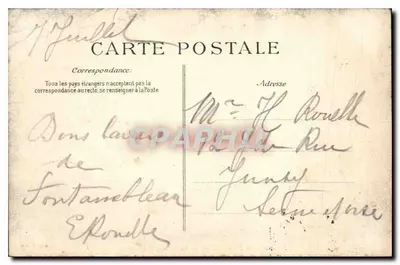 17 Juillet
CARTE POSTALE
Correspondance:
Tous les pays étrangers n'acceptent pas la
correspondance au recto, se renseigner à la Poste.
Bons
de
Fontainebleau
ERouelle
Adresse
Mr H Rouelle
Rue
Seine et Oise